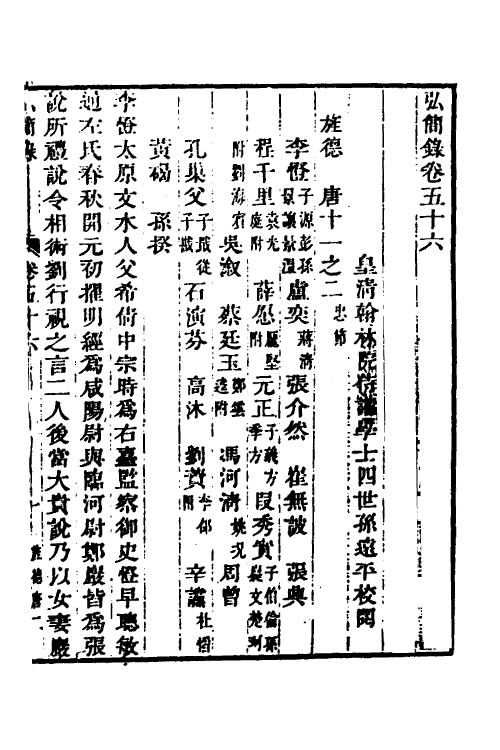 弘簡錄卷五十六
皇淸翰林院侍讀學士四世孫遠平校閱
旌德 唐十一之二 忠節
李憕 子源彭孫 景讓景溫 盧奕 蔣淸 張介然 崔無詖 張興
程千里 袁光庭附 薛愿 龐堅附 元正 子義方 季方 段秀實 子伯倫孫 嶷文楚珂
附劉海賓 吳漵 蔡廷玉 鄭雲逵附 馮河淸 姚況 周曾
孔巢父 子戡從子戣 石演芬 高沐 劉賁 李郃附 辛讜 杜慆
黃碣 孫揆
李憕太原文水人父希倩中宗時爲右臺監察御史憕早聰敏
通左氏春秋開元初擢明經爲咸陽尉與臨河尉鄭巖皆爲張
說所禮說令相術劉行視之言二人後當大貴說乃以女妻巖
弘簡錄 卷五十六 一 旌德唐二